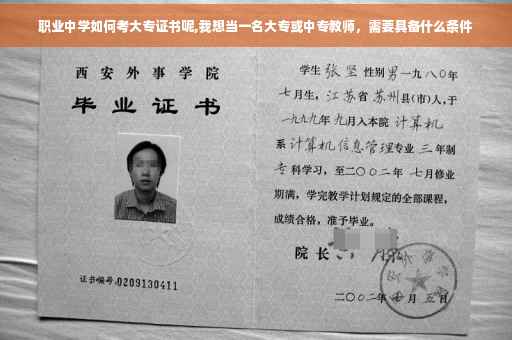 职业中学如何考大专证书呢,我想当一名大专或中专教师，需要具备什么条件
西安外事学院
毕业证书
证书编号:0209130411
学生 张坚 性别男 一九八〇年
七月生，江苏省苏州县(市)人,于
一九九九年九月入本院 计算机
系 计算机信息管理专业 三 年制
专科学习，至二〇〇二年 七月修业
期满，学完教学计划规定的全部课程，
成绩合格，准予毕业。
院长
二〇〇二年 月 五日